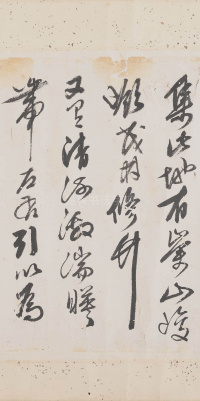 集此地有崇山峻
領茂林修竹
又有清流激湍暎
帶左右引以為